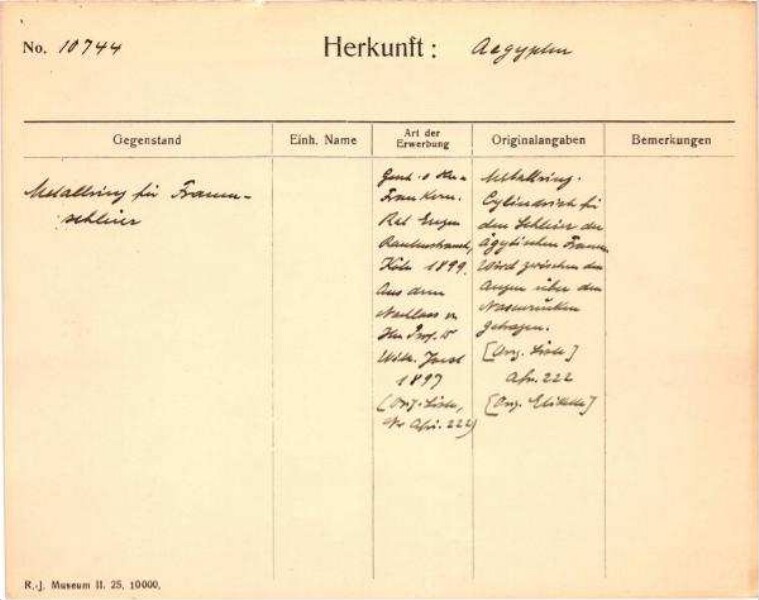 No. 10744
Herkunft: Aegypten
Gegenstand
Einh. Name
Art der Erwerbung
Originalangaben
Bemerkungen
Metallring für Frauen-
schleier
Frau Kom.
Rat Eugen
Rautenstrauch,
Köln 1899.
Aus dem
Nachlass v.
Hrn Prof. Dr
Wilh. Joest
1897
(Orig. Liste,
Nr Afr. 222)
Metallring.
Cylindrisch für
den Schleier der
ägyptischen Frauen.
Wird zwischen den
Augen über den
Nasenrücken
getragen.
[Orig. Liste]
Afr. 222
[Orig. Etikette]
R.-J. Museum II. 25, 10000.